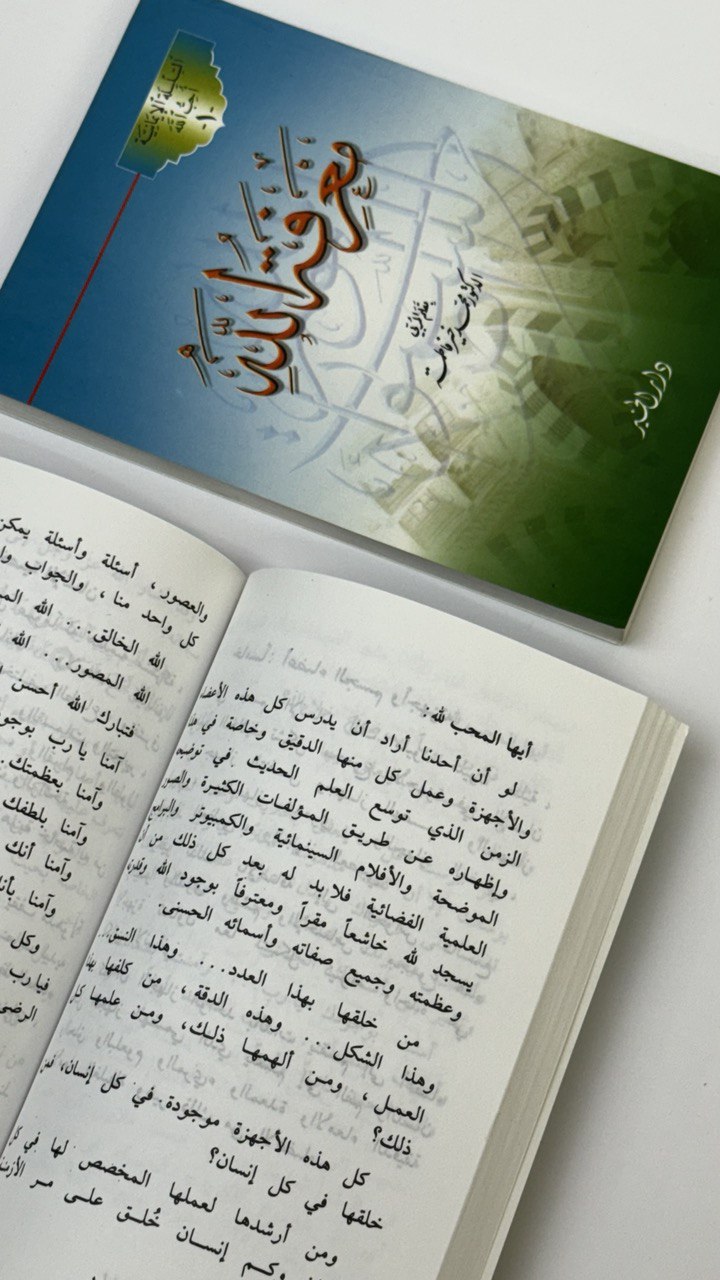 السلسلة الإيمانية
أحب الله
-١-
معرفة الله
بقلم المربي
الدكتور محمد خير فاطمة
دار الخير
أيها المحب لله:
لو أن أحدنا أراد أن يدرس كل هذه
والأجهزة وعمل كل منها الدقيق وخاصة في
الزمن الذي توسع العلم الحديث في توضيح
وإظهاره عن طريق المؤلفات الكثيرة والصور
الموضحة والأفلام السينمائية والكمبيوتر والبرامج
العلمية الفضائية فلا بد له بعد كل ذلك من أن
يسجد لله خاشعاً مقراً ومعترفاً بوجود الله وقدرته
وعظمته وجميع صفاته وأسمائه الحسنى.
من خلقها بهذا العدد... وهذا
وهذا الشكل... وهذه الدقة، من كلفها بهذا
العمل، ومن ألهمها ذلك، ومن علمها كل
ذلك؟
كل هذه الأجهزة موجودة في كل إنسان، فمن
خلقها في كل إنسان؟
ومن أرشدها لعملها المخصص لها في كل
وكم إنسان خُلق على مر
والعصور، أسئلة وأسئلة يمكن
كل واحد منا، والجواب
الله الخالق... الله
الله المصور... الله
فتبارك الله أحسن
آمنا يا رب
وآمنا بعظمتك
وآمنا بلطفك
وآمنا أنك
وآمنا
وكل
فيا رب